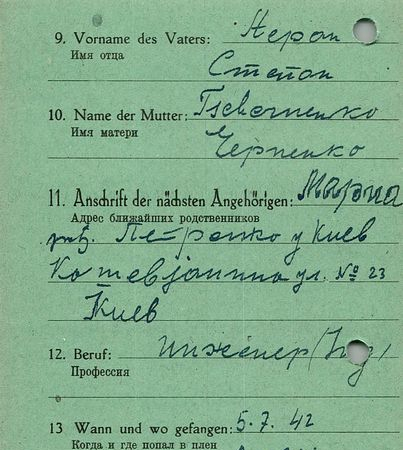 9. Vorname des Vaters:
Имя отца
Степан
10. Name der Mutter: Tschernenko
Имя матери
Черненко
11. Anschrift der nächsten Angehörigen: Мариа
Адрес ближайших родственников
у Киев
ул. № 23
Киев
12. Beruf: инженер
Профессия
13 Wann und wo gefangen: 5. 7. 42
Когда и где попал в плен